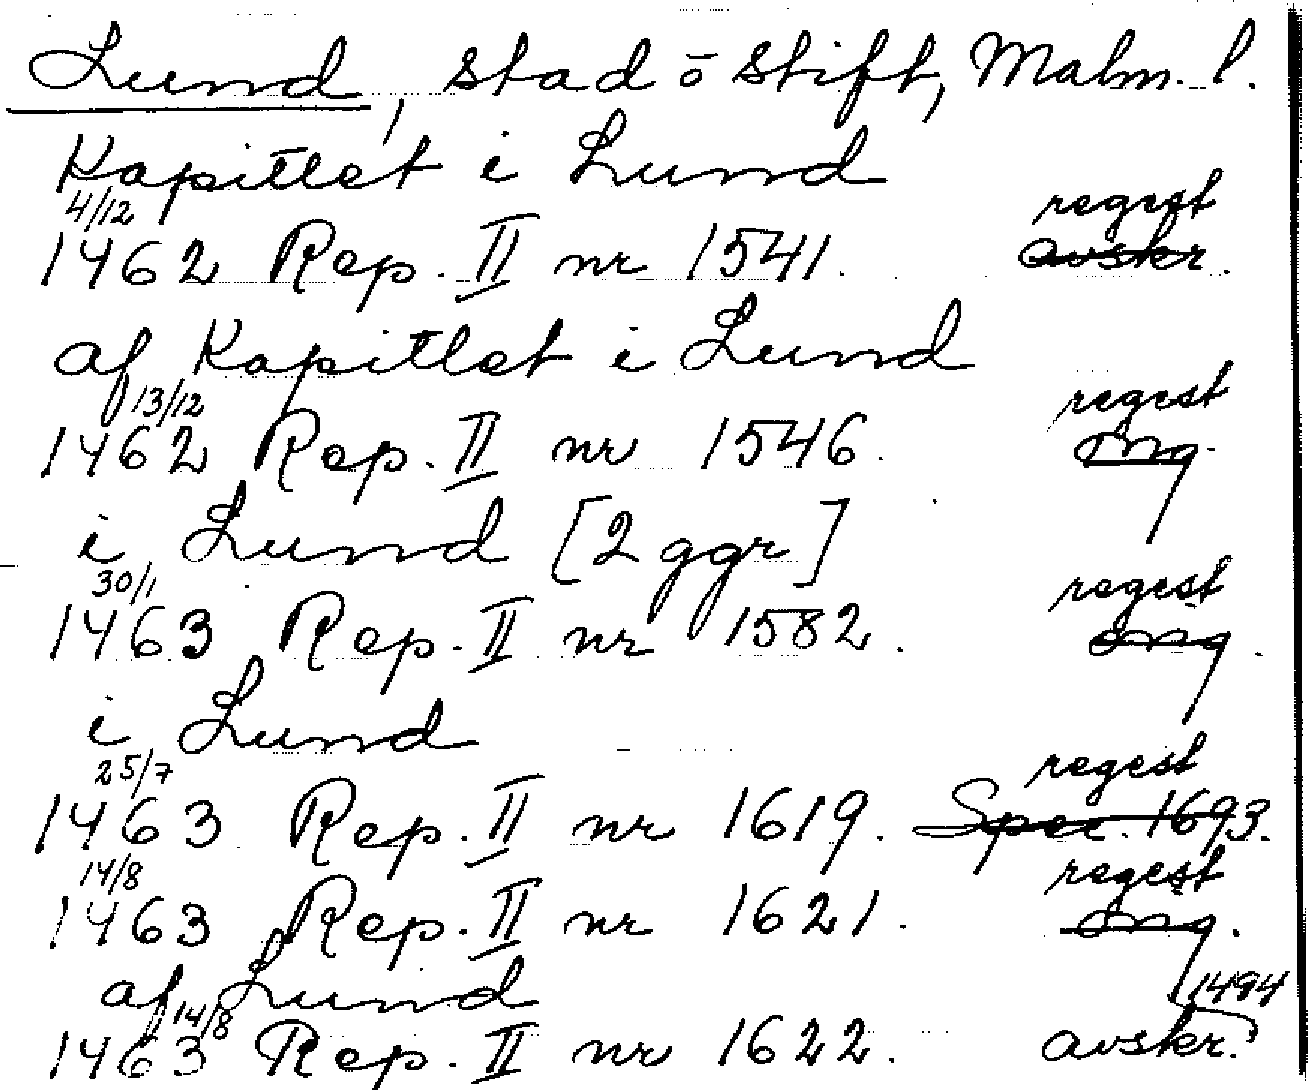 Lund, stad ō stift, Malm. l.
Kapitlet i Lund
4/12 regest
1462 Rep. II nr 1541. avskr.
af Kapitlet i Lund
13/12 regest
1462 Rep. II nr 1546. mg.
i Lund [2 ggr]
30/1 regest
1463 Rep. II nr 1582. mg.
i Lund
25/7 regest
1463 Rep. II nr 1619. Spec. 1693.
14/8 regest
1463 Rep. II nr 1621. mg.
af Lund
14/8 1494
1463 Rep. II nr 1622. avskr.